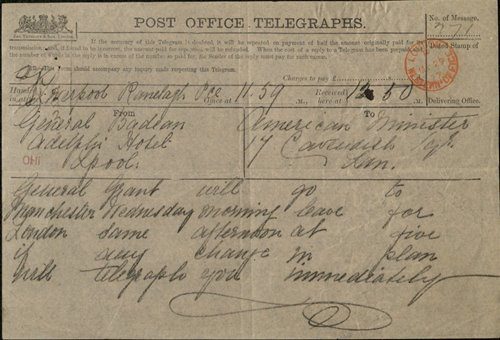 POST OFFICE TELEGRAPHS.
No. of Message,
If the accuracy of this Telegram is doubted, it will be repeated on payment of half the amount originally paid for its
transmission, and, if found to be incorrect, the amount paid for repetition will be refunded. When the cost of a reply to a Telegram has been prepaid, and
the number of words in the reply is in excess of the number so paid for, the Sender of the reply must pay for such excess.
Dated Stamp of
N.B. This Form should accompany any inquiry made respecting this Telegram.
Charges to pay £
Handed in at the Liverpool Ranelagh Office at 11.59 M., Received here at 12.50 M., Delivering Office.
From To
General Badeau American Minister
Adelphi Hotel 17 Cavendish Sqr
Lpool. Lon.
OHI
General Grant will go to
Manchester Wednesday morning leave for
London same afternoon at five
if any change in plan
will telegraph you immediately